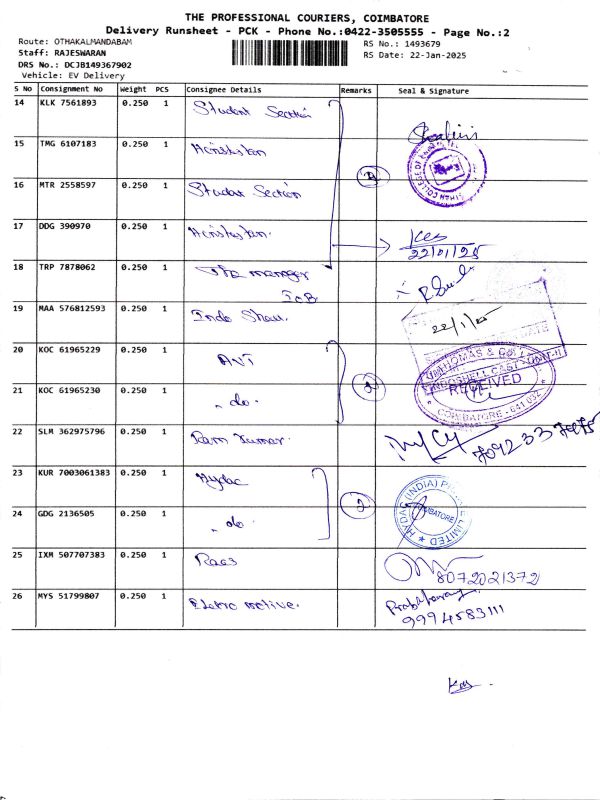 THE PROFESSIONAL COURIERS, COIMBATORE
Delivery Runsheet - PCK - Phone No.:0422-3505555 - Page No.:2
Route: OTHAKALMANDABAM
RS No.: 1493679
Staff: RAJESWARAN
RS Date: 22-Jan-2025
DRS No.: DCJB149367902
Vehicle: EV Delivery
S No Consignment No Weight PCS Consignee Details Remarks Seal & Signature
14 KLK 7561893 0.250 1 Student Section
15 TMG 6107183 0.250 1
16 MTR 2558597 0.250 1 Student Section
17 DDG 390970 0.250 1
22/01/25
18 TRP 7878062 0.250 1 The manager
IcB
19 MAA 576812593 0.250 1 Indo
22/1/25
20 KOC 61965229 0.250 1 ANT
THOMAS & CO
RECEIVED
COIMBATORE - 641 032
21 KOC 61965230 0.250 1 - do -
22 SLM 362975796 0.250 1 Ram kumar
23 KUR 7003061383 0.250 1 Hydac
HYDAC (INDIA) PRIVATE LIMITED
24 GDG 2136505 0.250 1 - do - 2
25 IXM 507707383 0.250 1 Raas
8072021372
26 MYS 51799807 0.250 1 Eletro motive.
9994583111